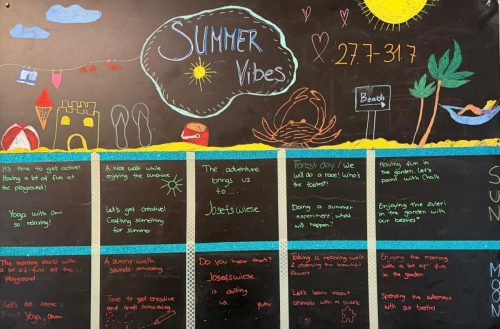 SUMMER
Vibes
27.7-31.7
Beach
It's time to get active!
Having a lot of fun at
the playground!
Yoga with
so relaxing!
A nice walk while
enjoying the sunshine
Let's get creative!
Crafting something
for summer
The adventure
brings us
to....
Josefswiese
Forest day! We
will do a race! Who's
the fastest?
Doing a summer
experiment, what
will happen?
Having fun in
the garden. Let's
paint with Chalk
Enjoying the
in the garden with
our besties
S
U
The morning starts with
a lot of fun at the
playground
Let's do some
Yoga,
A sunny walk
sounds amazing
Time to get creative
and craft something
Do you hear that?
Josefswiese
is calling
us...
yuhu
Taking a relaxing walk
& observing the beautiful
flowers
Let's learn about
animals with a puzzle
Enjoying the morning
with a lot of fun
in the garden
Spending the afternoon
with our besties